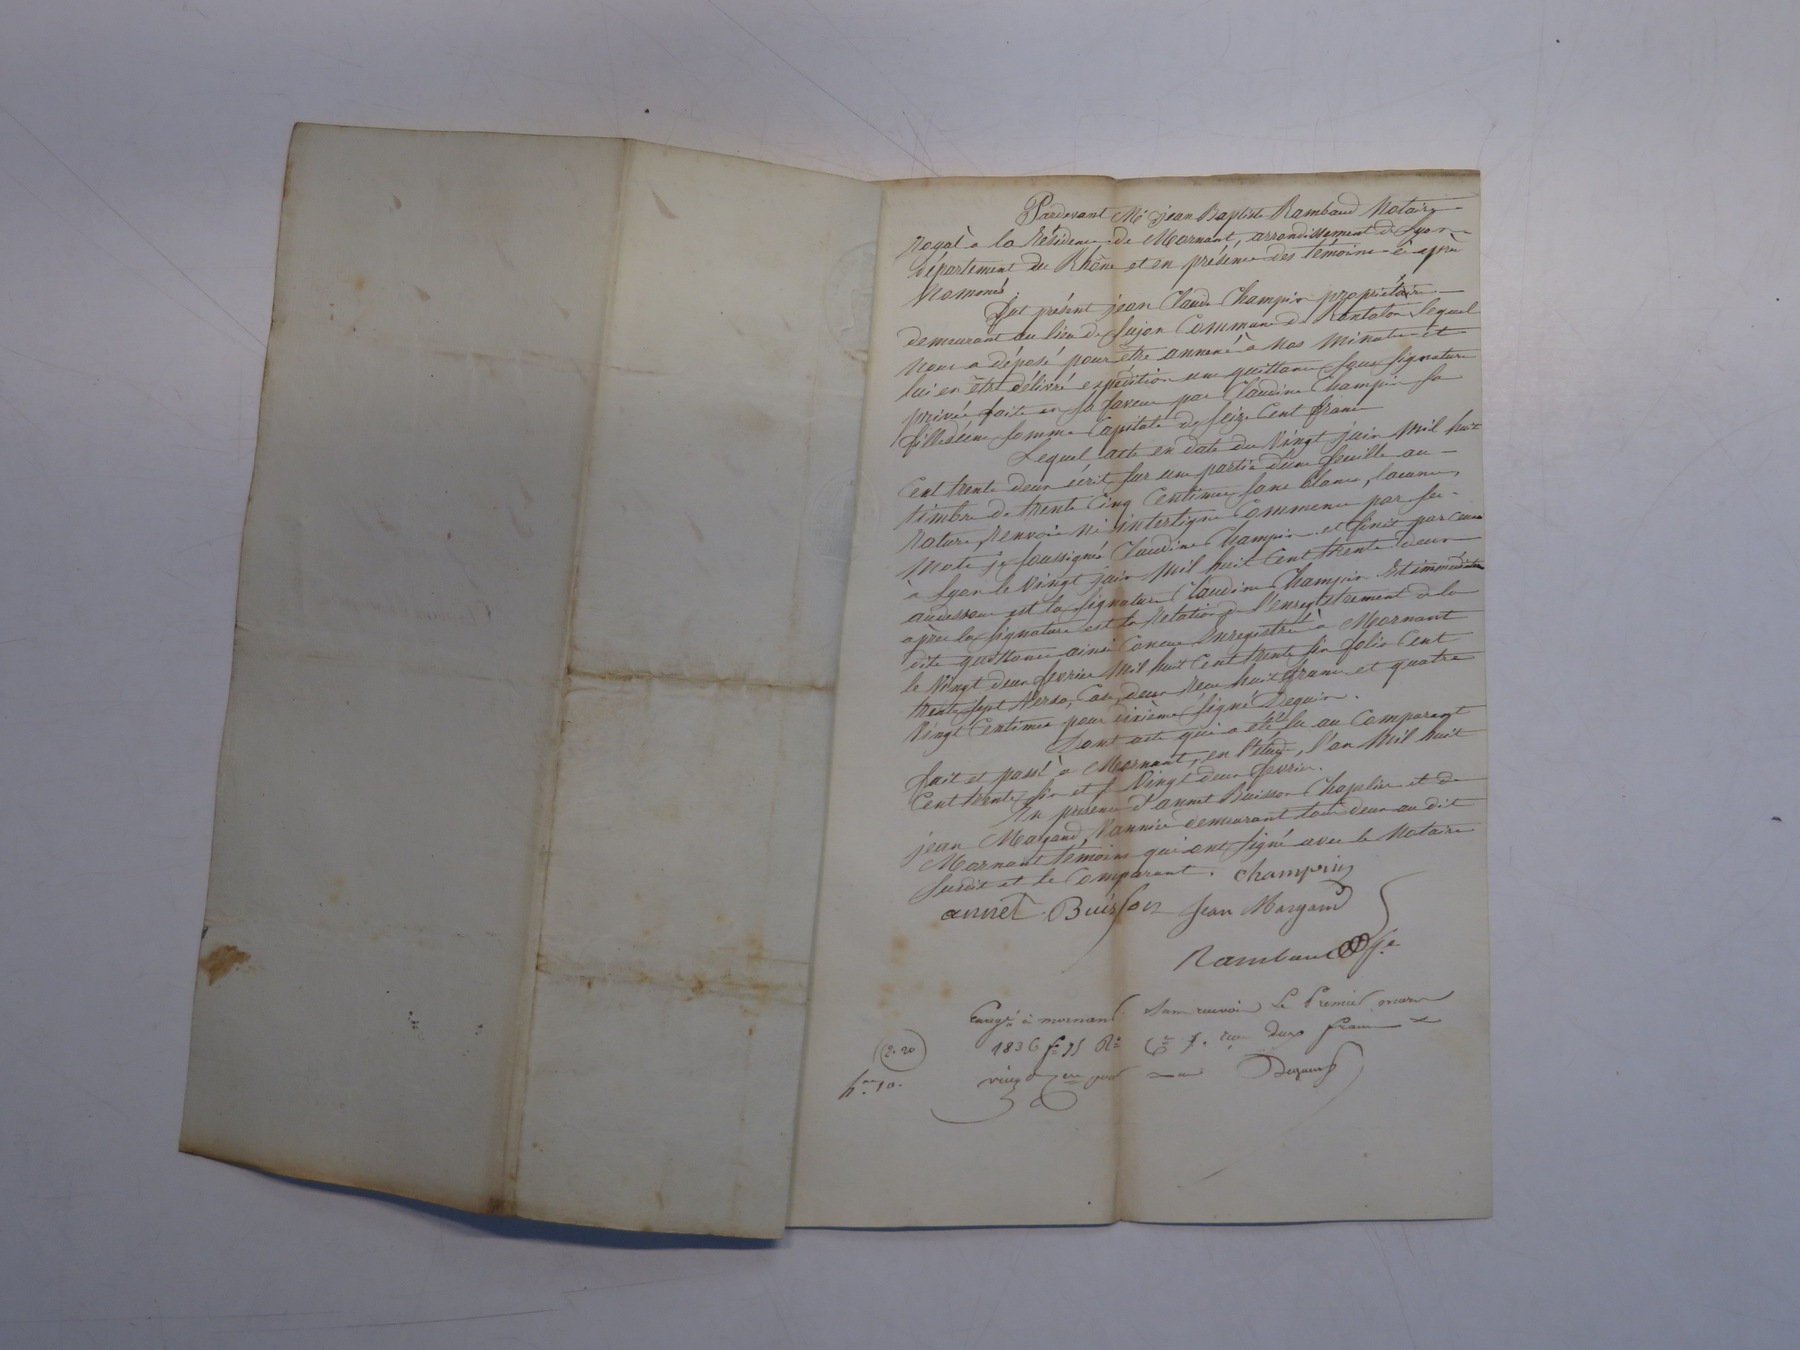 Pardevant Me jean Baptiste Rambaud Notaire
Royal à la Résidence de Mornant, arrondissement de Lyon
département du Rhône et en présence des témoins ci après
Nommés
fut présent jean Claude Champin propriétaire
demeurant au lieu de Commune de Rontalon lequel
Nous a déposé pour être annexé à Nos Minutes et
lui en être délivré expédition une quittance sous signature
privée faite en sa faveur par Claudine Champin sa
fille d'une somme Capitale de seize Cent francs
Lequel acte en date du Vingt juin Mil huit
Cent trente deux écrit sur une partie d'une feuille au
timbre de trente Cinq Centimes sans blanc, lacune,
Rature, Renvoie ni interligne Commence par ses
Mots je soussignée Claudine Champin et finit par ceux
à Lyon le Vingt juin Mil huit Cent trente deux
audessous est la signature Claudine Champin Et immédiatem
après la signature est la Relation de l'enregistrement de la
dite quittance ainsi Concue Enregistré à Mornant
le Vingt deux fevrier Mil huit Cent trente six folio Cent
trente sept Verso, Case deux Recu huit francs et quatre
Vingt Centimes pour dixième signé Deguin.
Dont acte qui a été lu au Comparant
fait et passé à Mornant, en l'étude, l'an Mil huit
Cent trente six et le Vingt deux fevrier.
En présence d'annet Buisson Chapelier et de
jean Margand, Vannier demeurant tous deux au dit
Mornant témoins qui ont signé avec le Notaire
susdit et le Comparant. Champin
annet Buisson Jean Margand
Rambaud
Enregé à mornant Le Premier mars
2.20 1836 deux francs
10. vingt